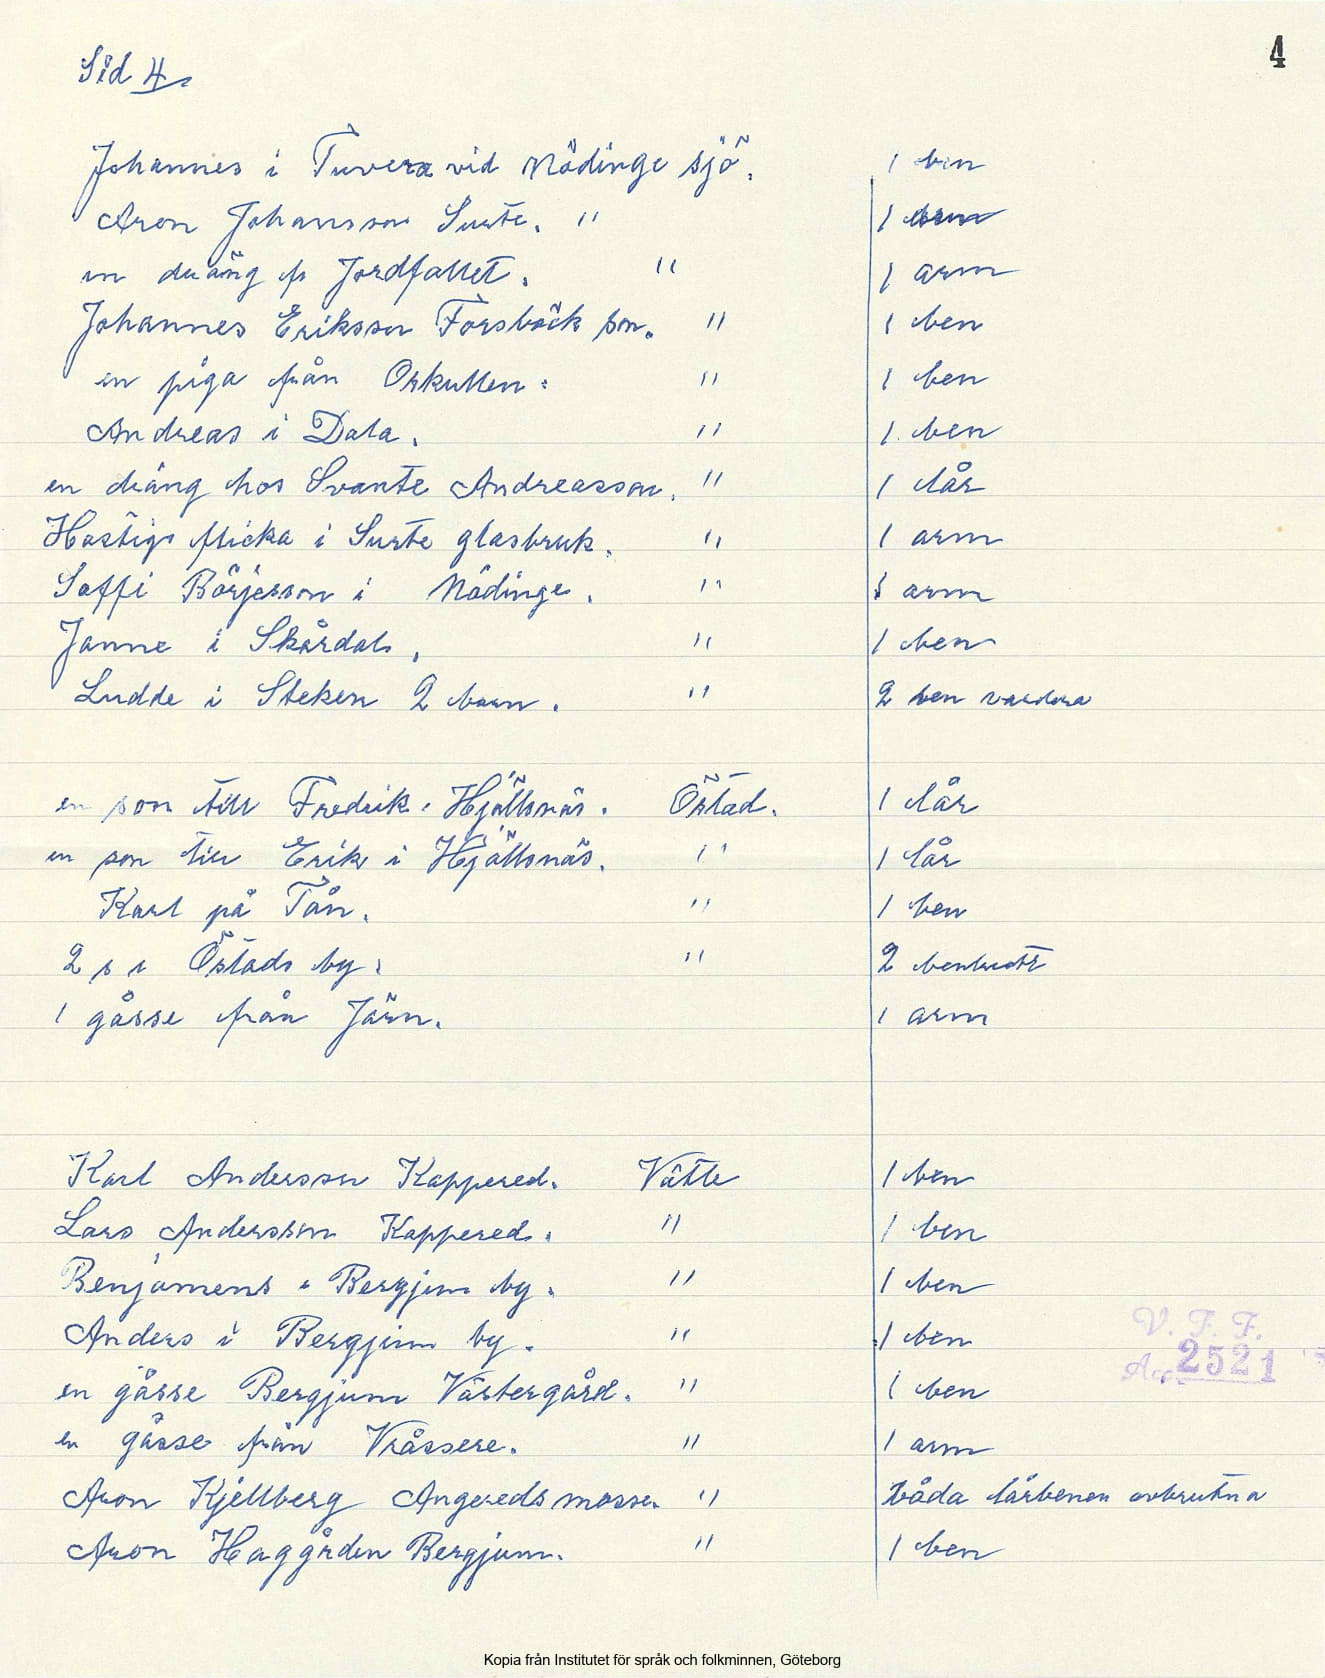 4
Sid 4.
Johannes i Tuvera vid Nödinge sjö. 1 ben
Aron Johansson Surte. " 1 arm
en dräng fr Jordfallet. " 1 arm
Johannes Eriksson Forsbäck son. " 1 ben
en piga från Orkullen. " 1 ben
Andreas i Dala. " 1 ben
en dräng hos Svante Andreasson. " 1 lår
Hostigs flicka i Surte glasbruk. " 1 arm
Soffi Börjesson i Nödinge. " 1 arm
Janne i Skårdals. " 1 ben
Ludde i Steken 2 barn. " 2 ben vardera
en son till Fredrik i Hjällsnäs. Östad. 1 lår
en son till Erik i Hjällsnäs. " 1 lår
Karl på Tån. " 1 ben
2 s i Östads by. " 2 benbrott
1 gåsse från Järn. 1 arm
Karl Andersson Kappered. Vätte 1 ben
Lars Andersson Kappered. " 1 ben
Benjamens i Bergjum by. " 1 ben
Anders i Bergjum by. " 1 ben
V. F. F.
Acc. 2521
en gåsse Bergjum Västergård. " 1 ben
en gåsse från Vråssere. " 1 arm
Aron Kjellberg Angereds mosse. " båda lårbenen avbrutna
Aron Haggården Bergjum. " 1 ben
Kopia från Institutet för språk och folkminnen, Göteborg